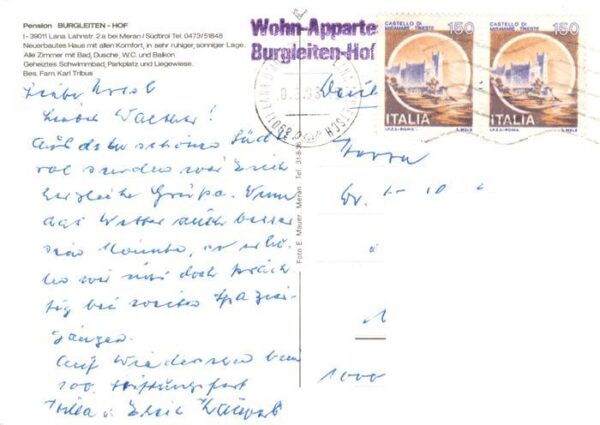 Pension BURGLEITEN - HOF
I- 39011 Lana. Lahnstr. 2 a bei Meran / Südtirol Tel. 0473/51848
Neuerbautes Haus mit allen Komfort, in sehr ruhiger, sonniger Lage.
Alle Zimmer mit Bad, Dusche, W.C. und Balkon
Geheiztes Schwimmbad, Parkplatz und Liegewiese.
Bes. Fam. Karl Tribus
Wohn-Apparte
Burgleiten-Hof
CASTELLO DI
MIRAMARE · TRIESTE
150
ITALIA
I.P.Z.S.-ROMA
CASTELLO DI
MIRAMARE · TRIESTE
150
ITALIA
I.P.Z.S.-ROMA
39011
Liebe
Lieber Walther!
Aus dem schönen Süd
tirol senden wir Euch
herzliche Grüße. Wenn
das Wetter auch besser
sein könnte, so erho-
len wir uns doch präch
tig bei weiten Spazier-
gängen.
Auf Wiedersehen beim
100. Stiftungsfest
Foto E. Mauer. Meran Tel.
Herrn
Dr.
1000